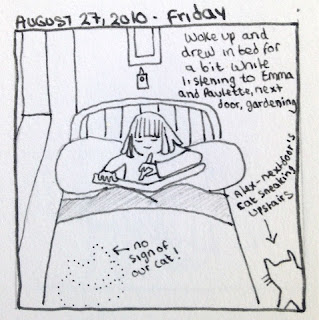 AUGUST 27, 2010 - Friday
Woke up and
drew in bed for
a bit while
listening to Emma
and Paulette, next
door, gardening
Alex-next-door's
cat sneaking
upstairs
no
sign of
our cat!